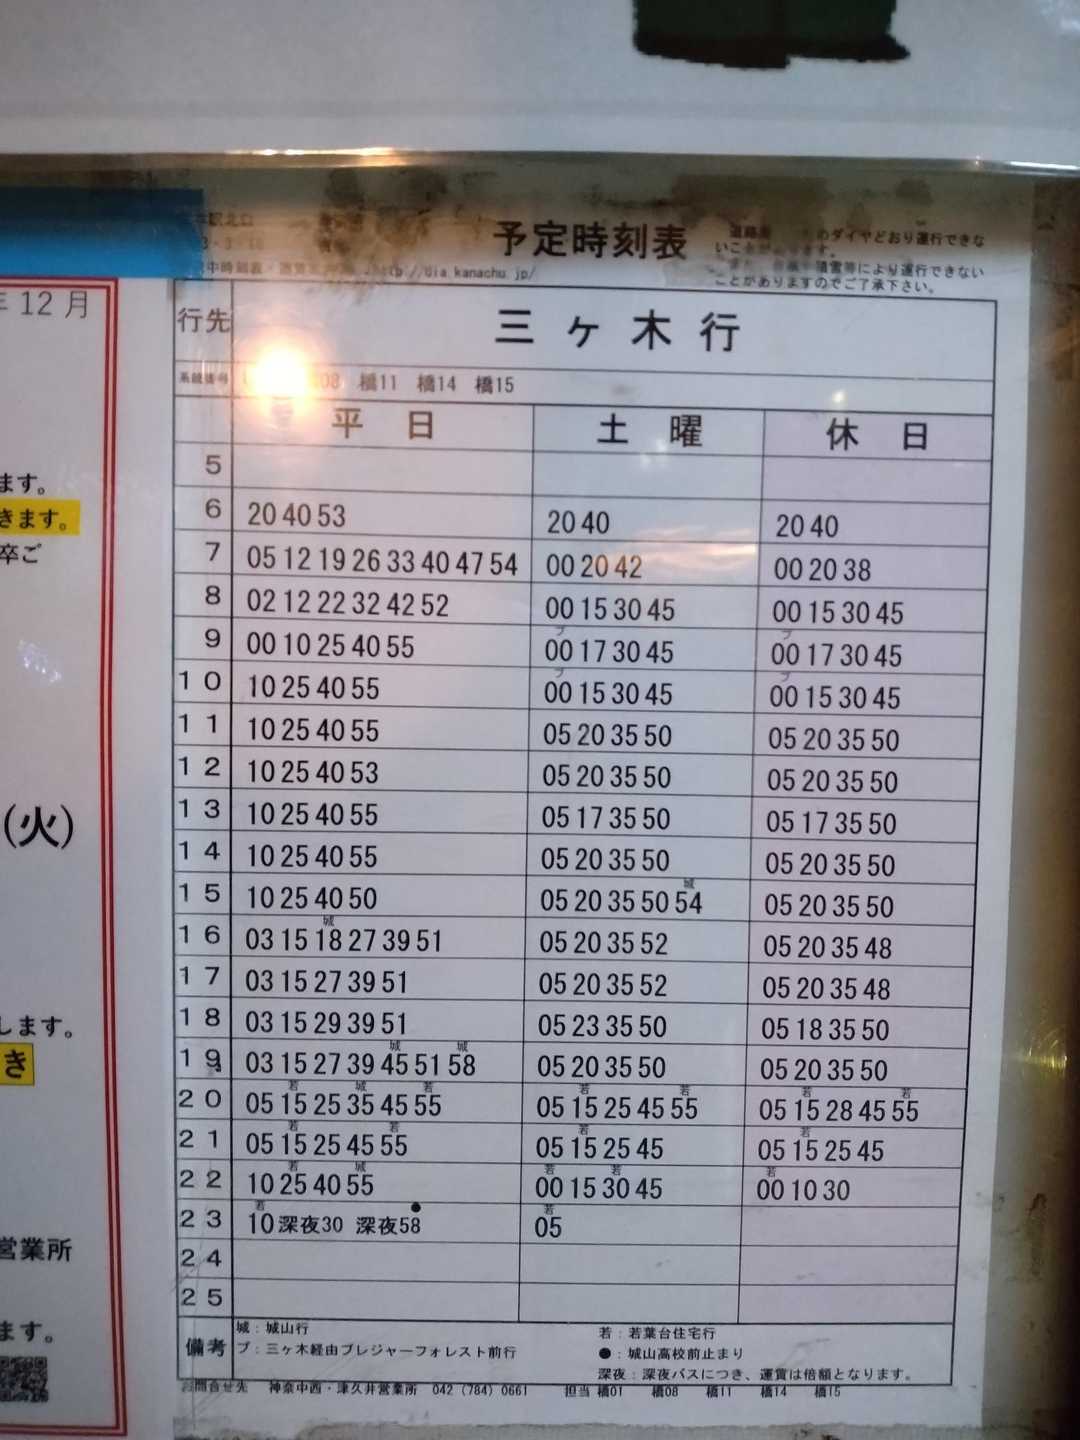 年12月
ます。
きます。
卒ご
(火)
します。
き
営業所
ます。
予定時刻表
のダイヤどおり運行できな
積雪等により運行できない
ことがありますのでご了承下さい。
http://dia.kanachu.jp/
行先 三ヶ木行
系統番号 橋11 橋14 橋15
平日 土曜 休日
5
6 20 40 53 20 40 20 40
7 05 12 19 26 33 40 47 54 00 20 42 00 20 38
8 02 12 22 32 42 52 00 15 30 45 00 15 30 45
9 00 10 25 40 55 プ00 17 30 45 プ00 17 30 45
10 10 25 40 55 プ00 15 30 45 プ00 15 30 45
11 10 25 40 55 05 20 35 50 05 20 35 50
12 10 25 40 53 05 20 35 50 05 20 35 50
13 10 25 40 55 05 17 35 50 05 17 35 50
14 10 25 40 55 05 20 35 50 05 20 35 50
15 10 25 40 50 05 20 35 50 城54 05 20 35 50
16 03 15 城18 27 39 51 05 20 35 52 05 20 35 48
17 03 15 27 39 51 05 20 35 52 05 20 35 48
18 03 15 29 39 51 05 23 35 50 05 18 35 50
19 03 15 27 39 城45 51 城58 05 20 35 50 05 20 35 50
20 05 若15 25 城35 45 若55 05 若15 25 45 若55 05 若15 28 45 若55
21 05 若15 25 45 若55 05 若15 25 45 05 若15 25 45
22 10 若25 40 城55 若00 15 若30 45 若00 10 30
23 若10 深夜30 深夜●58 若05
24
25
備考 城：城山行 若：若葉台住宅行
プ：三ヶ木経由プレジャーフォレスト前行 ●：城山高校前止まり
深夜：深夜バスにつき、運賃は倍額となります。
お問合せ先 神奈中西・津久井営業所 042(784)0661 担当 橋01 橋08 橋11 橋14 橋15